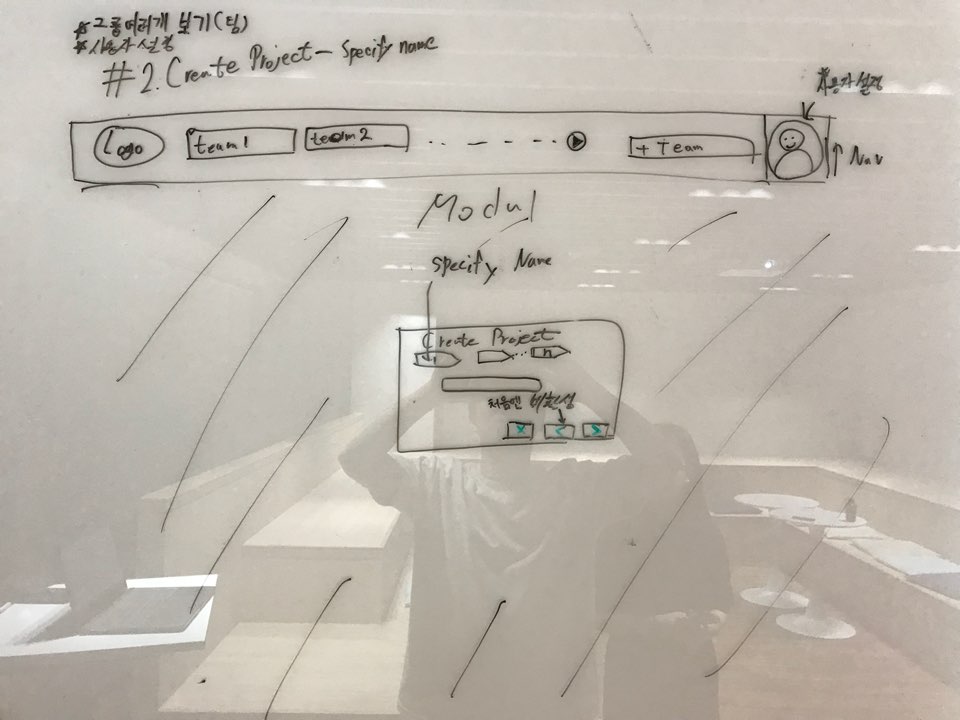 * 그룹 여러개 보기 (팀)
* 사용자 설정
#2. Create Project - Specify name
사용자 설정
Logo
team1
team2
+ Team
↑ Nav
Modul
specify Name
Create Project
1
n
처음엔 비활성
X
<
>